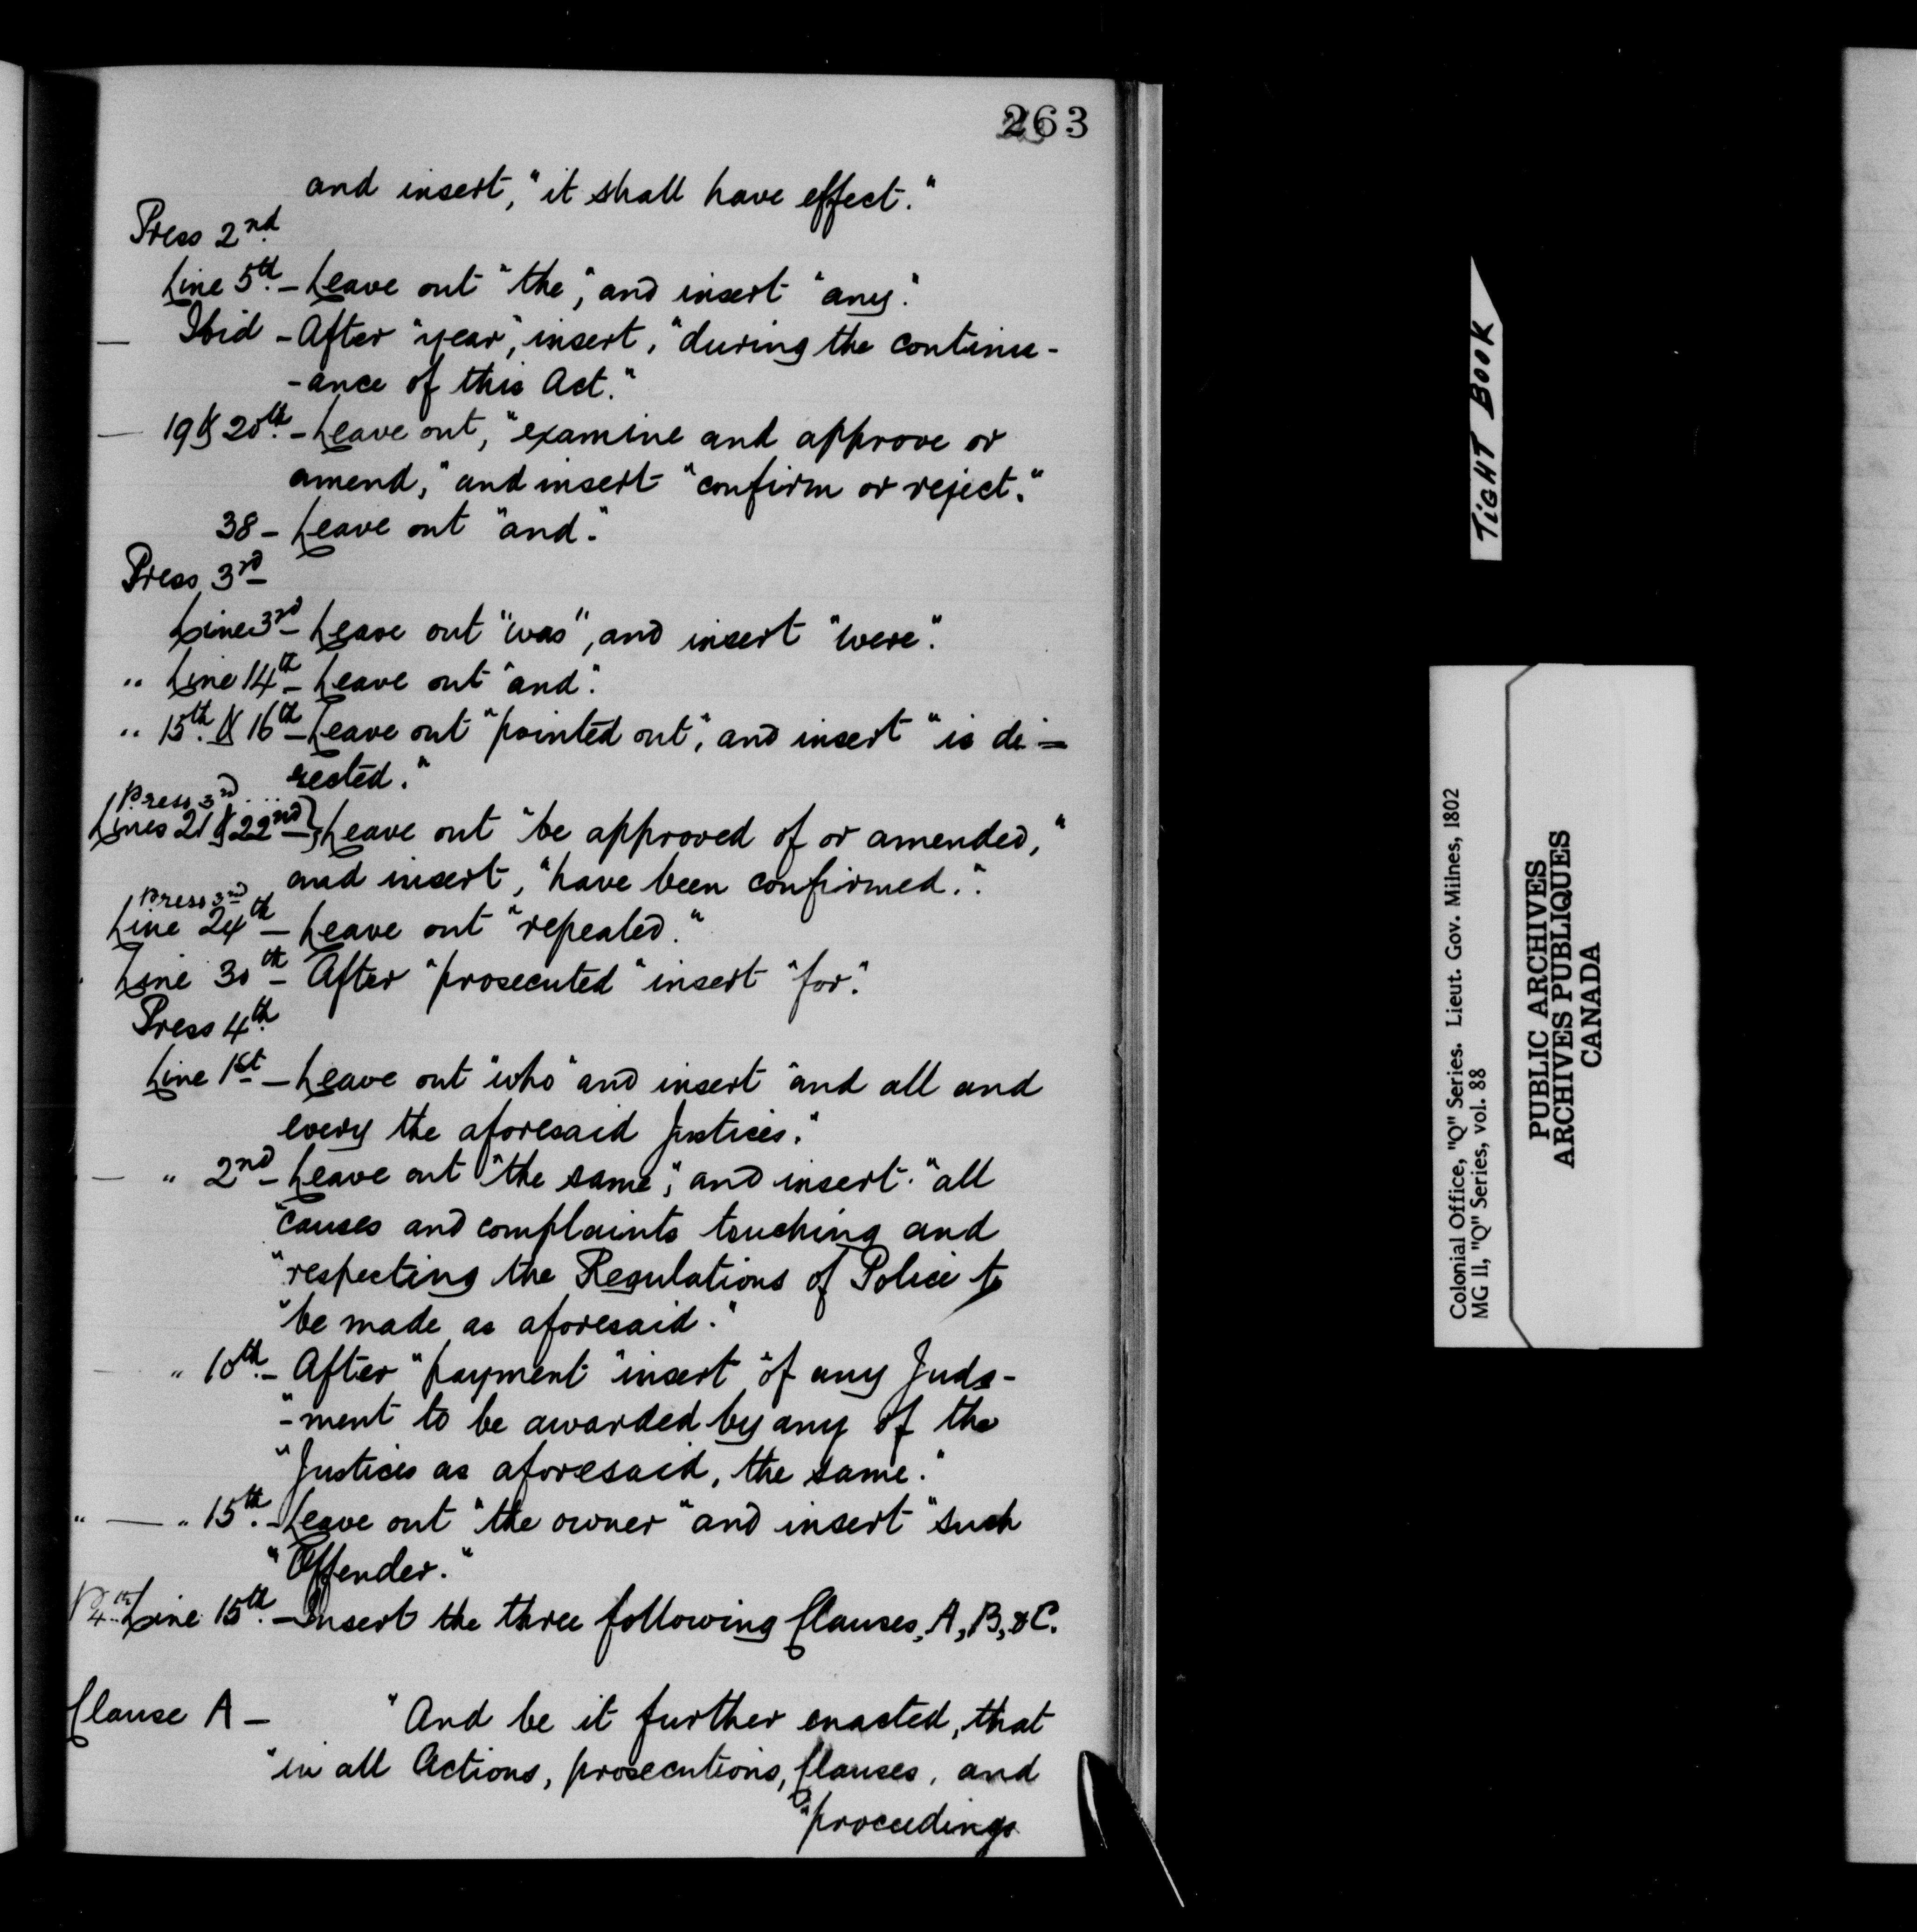 263
and insert, "it shall have effect."
Press 2nd.
Line 5th. - Leave out "the," and insert "any."
— Ibid - After "year," insert, "during the continu-
-ance of this Act."
— 19 & 20th. - Leave out, "examine and approve or
amend," and insert "confirm or reject."
38 - Leave out "and."
Press 3rd
Line 3rd - Leave out "was", and insert "were."
" Line 14th - Leave out "and."
" 15th. & 16th - Leave out "pointed out," and insert "is di-
rected."
Press 3rd ...
Lines 21 & 22nd } Leave out "be approved of or amended,"
and insert, "have been confirmed."
Press 3rd
Line 24th - Leave out "repealed."
Line 30th - After "prosecuted" insert "for."
Press 4th.
Line 1st - Leave out "who" and insert "and all and
every the aforesaid Justices."
— " 2nd - Leave out "the same," and insert "all
"causes and complaints touching and
"respecting the Regulations of Police to
"be made as aforesaid."
— " 10th. - After "payment" insert "of any Judg-
"-ment to be awarded by any of the
"Justices as aforesaid, the same."
" — " 15th. - Leave out "the owner" and insert "such
"Offender."
P 4th Line 15th. - Insert the three following Clauses, A, B, & C.
Clause A - "And be it further enacted, that
"in all Actions, prosecutions, Clauses, and
"proceedings
TIGHT BOOK
Colonial Office, "Q" Series. Lieut. Gov. Milnes, 1802
MG 11, "Q" Series, vol. 88
PUBLIC ARCHIVES
ARCHIVES PUBLIQUES
CANADA